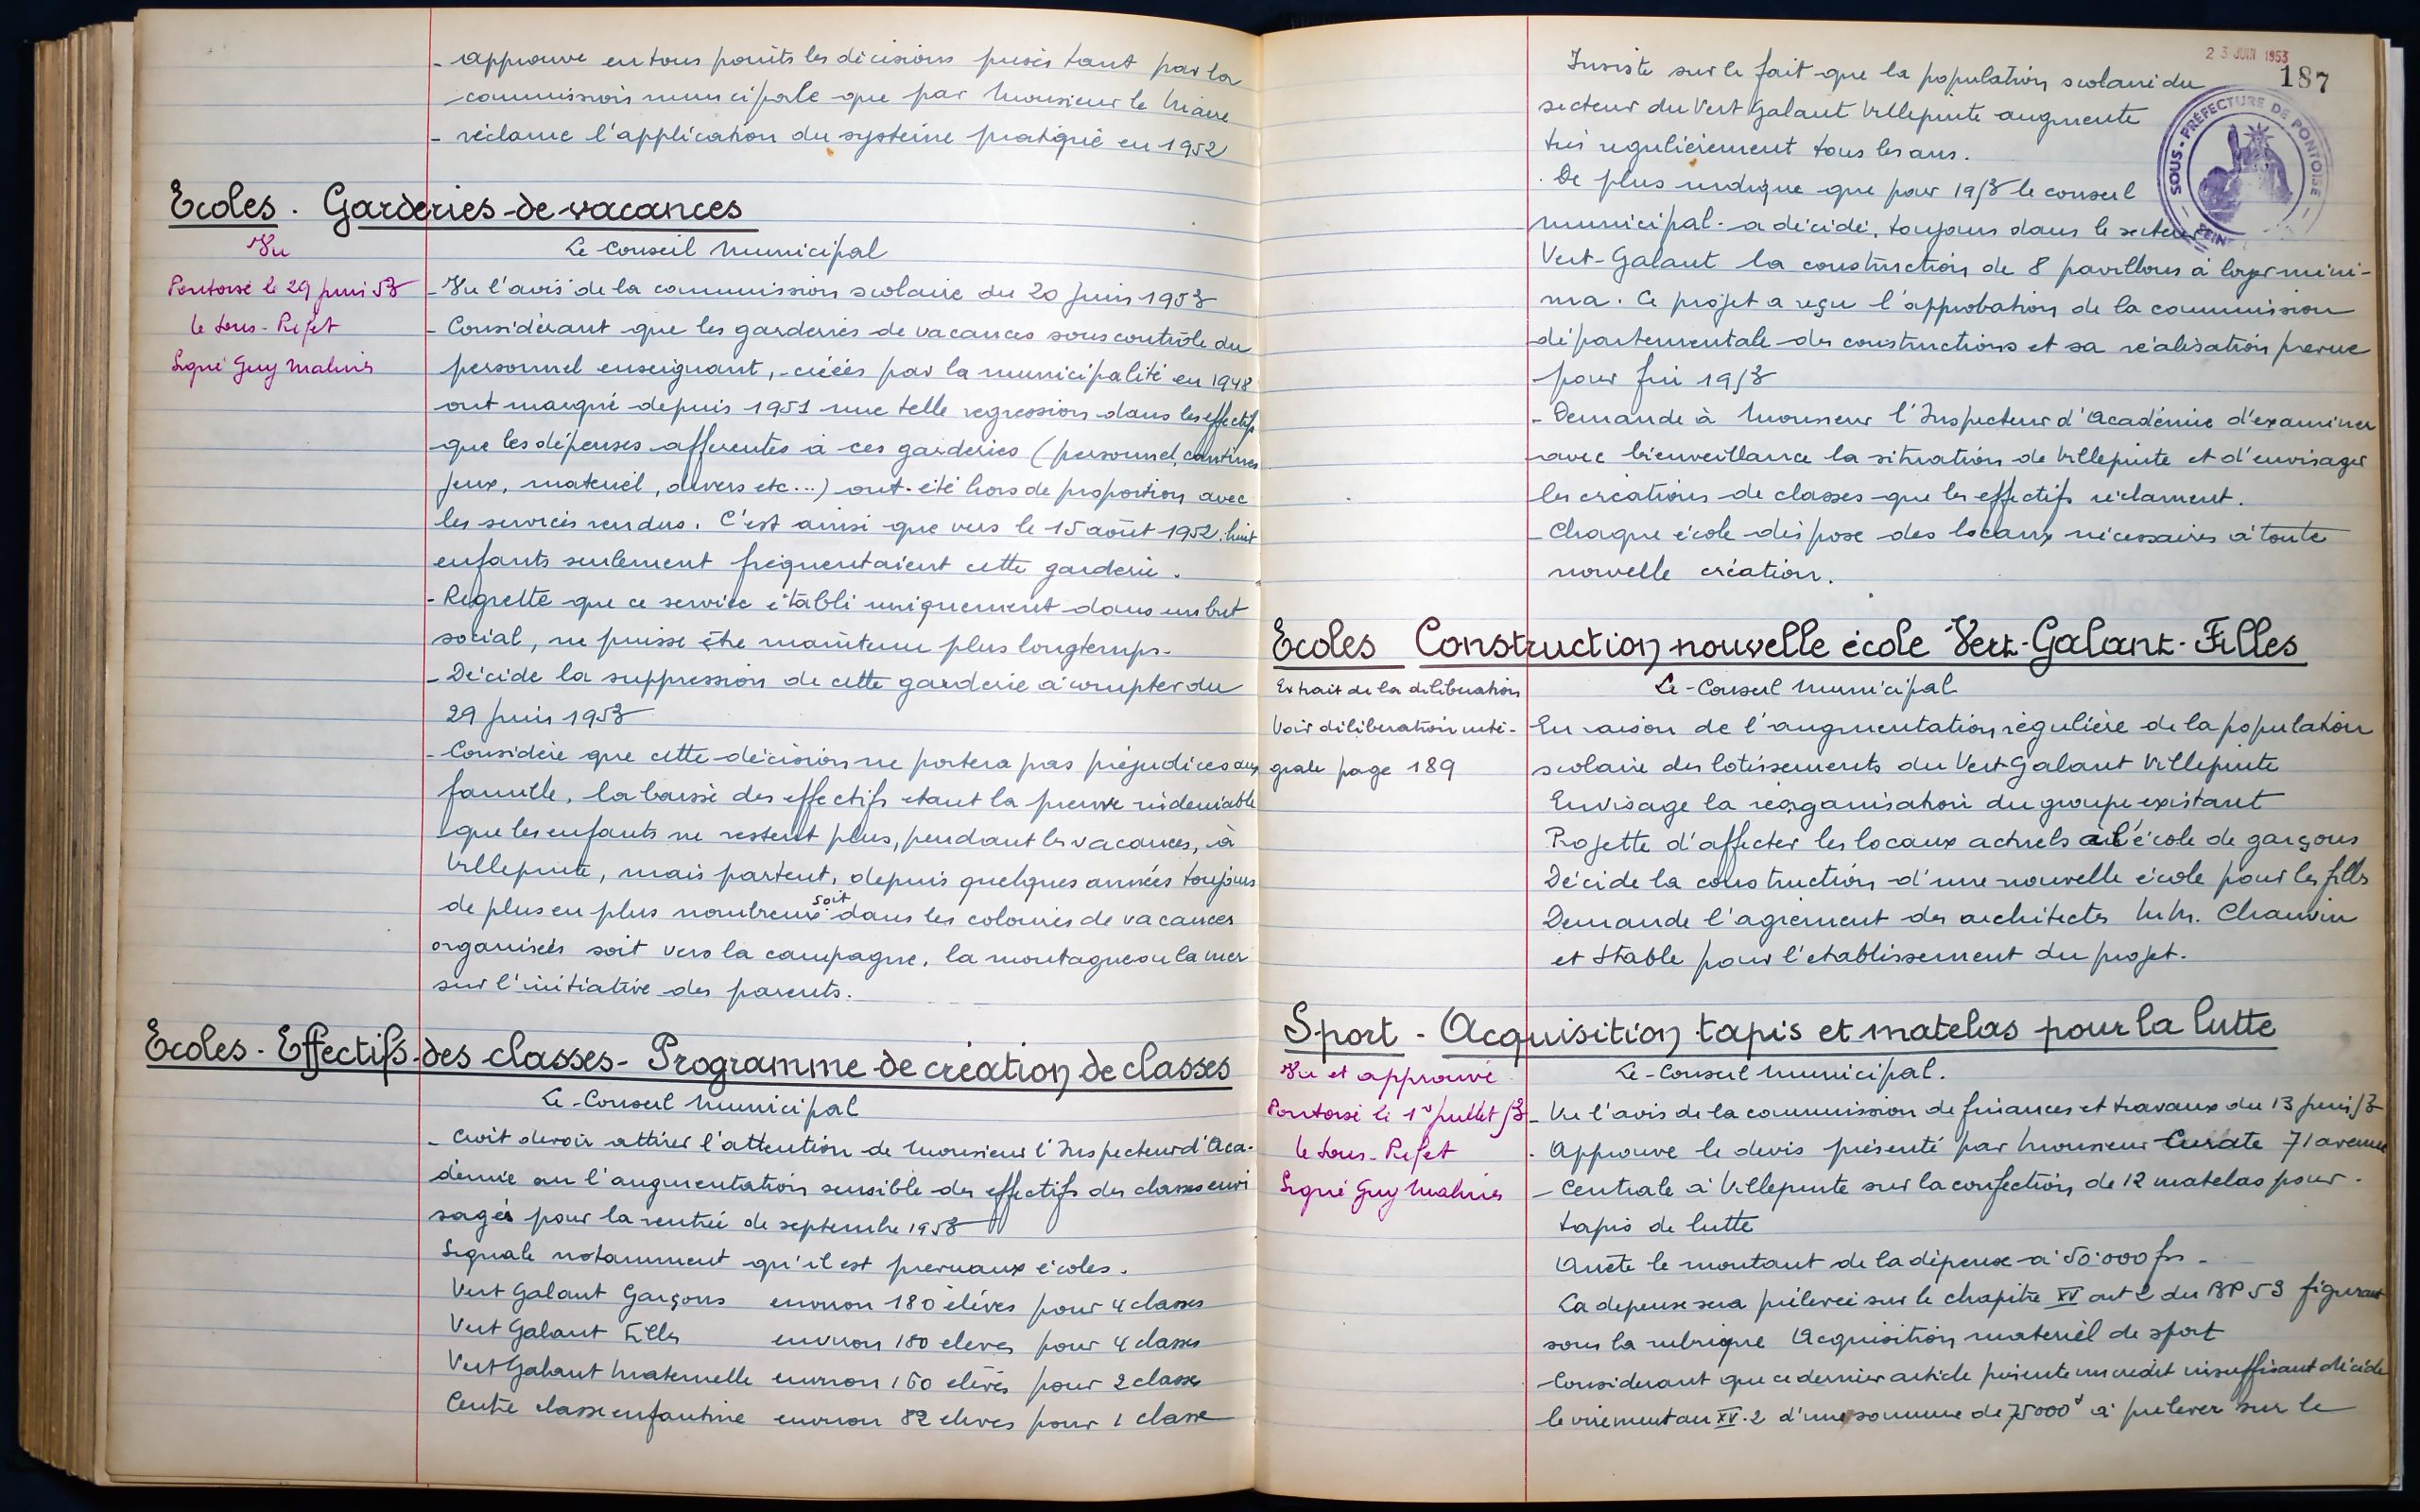 - approuve en tous points les décisions prises tant par la
commission municipale que par Monsieur le Maire
- réclame l'application du système pratiqué en 1952
Ecoles. Garderies de vacances
Vu
Pontoise le 29 juin 53
le Sous-Préfet
Signé Guy Malines
Le Conseil Municipal
- Vu l'avis de la commission scolaire du 20 Juin 1953
- Considérant que les garderies de vacances sous contrôle du
personnel enseignant, créées par la municipalité en 1948
ont marqué depuis 1951 une telle regression dans les effectifs
que les dépenses afferentes à ces garderies (personnel, cantines
jeux, materiel, divers etc...) ont été hors de proportion avec
les services rendus. C'est ainsi que vers le 15 août 1952, huit
enfants seulement fréquentaient cette garderie.
- Regrette que ce service établi uniquement dans un but
social, ne puisse être maintenu plus longtemps.
- Décide la suppression de cette garderie à compter du
29 juin 1953
- Considère que cette décision ne portera pas préjudices aux
famille, la baisse des effectifs etant la preuve indeniable
que les enfants ne restent plus, pendant les vacances, à
Villepinte, mais partent, depuis quelques années toujours
de plus en plus nombreux soit dans les colonies de vacances
organisées soit vers la campagne, la montagne ou la mer
sur l'initiative des parents.
Ecoles. Effectifs des classes - Programme de création de classes
Le Conseil Municipal
- Croit devoir attirer l'attention de Monsieur l'Inspecteur d'Aca-
démie sur l'augmentation sensible des effectifs des classes envi
sagés pour la rentrée de septembre 1953
Signale notamment qu'il est prevu aux écoles.
Vert Galant Garçons environ 180 élèves pour 4 classes
Vert Galant Filles environ 180 eleves pour 4 classes
Vert Galant Maternelle environ 160 élèves pour 2 classes
Centre classe enfantine environ 82 élèves pour 1 classe
23 JUIN 1953
187
SOUS-PRÉFECTURE DE PONTOISE
Insiste sur le fait que la population scolaire du
secteur du Vert Galant Villepinte augmente
très regulièrement tous les ans.
. De plus indique que pour 1953 le conseil
municipal a décidé, toujours dans le secteur
Vert-Galant la construction de 8 pavillons à loyer mini-
ma. Ce projet a reçu l'approbation de la commission
départementale des constructions et sa réalisation prevue
pour fin 1953
- Demande à Monsieur l'Inspecteur d'Académie d'examiner
avec bienveillance la situation de Villepinte et d'envisager
les créations de classes que les effectifs réclament.
- Chaque école dispose des locaux nécessaires à toute
nouvelle création.
Ecoles Construction nouvelle école Vert-Galant-Filles
Extrait de la déliberation
Voir déliberation inté-
grale page 189
Le Conseil Municipal
En raison de l'augmentation régulière de la population
scolaire des lotissements du Vert Galant Villepinte
Envisage la réorganisation du groupe existant
Projette d'affecter les locaux actuels à l'école de garçons
Décide la construction d'une nouvelle école pour les filles
Demande l'agrément des architectes MM. Chauvin
et Stable pour l'etablissement du projet.
Sport - Acquisition tapis et matelas pour la lutte
Vu et approuvé
Pontoise le 1er juillet 53
le Sous-Préfet
Signé Guy Malines
Le Conseil Municipal.
- Vu l'avis de la commission de finances et travaux du 13 juin 53
. Approuve le devis présenté par Monsieur Curate 71 avenue
- Centrale à Villepinte sur la confection de 12 matelas pour
tapis de lutte
Arrête le montant de la dépense à 50.000 frs.
La depense sera prélevée sur le chapitre XV art 2 du BP 53 figurant
sous la rubrique Acquisition materiel de sport
Considerant que ce dernier article présente un crédit insuffisant décide
le virement au XV.2 d'une somme de 75000 à prelever sur le